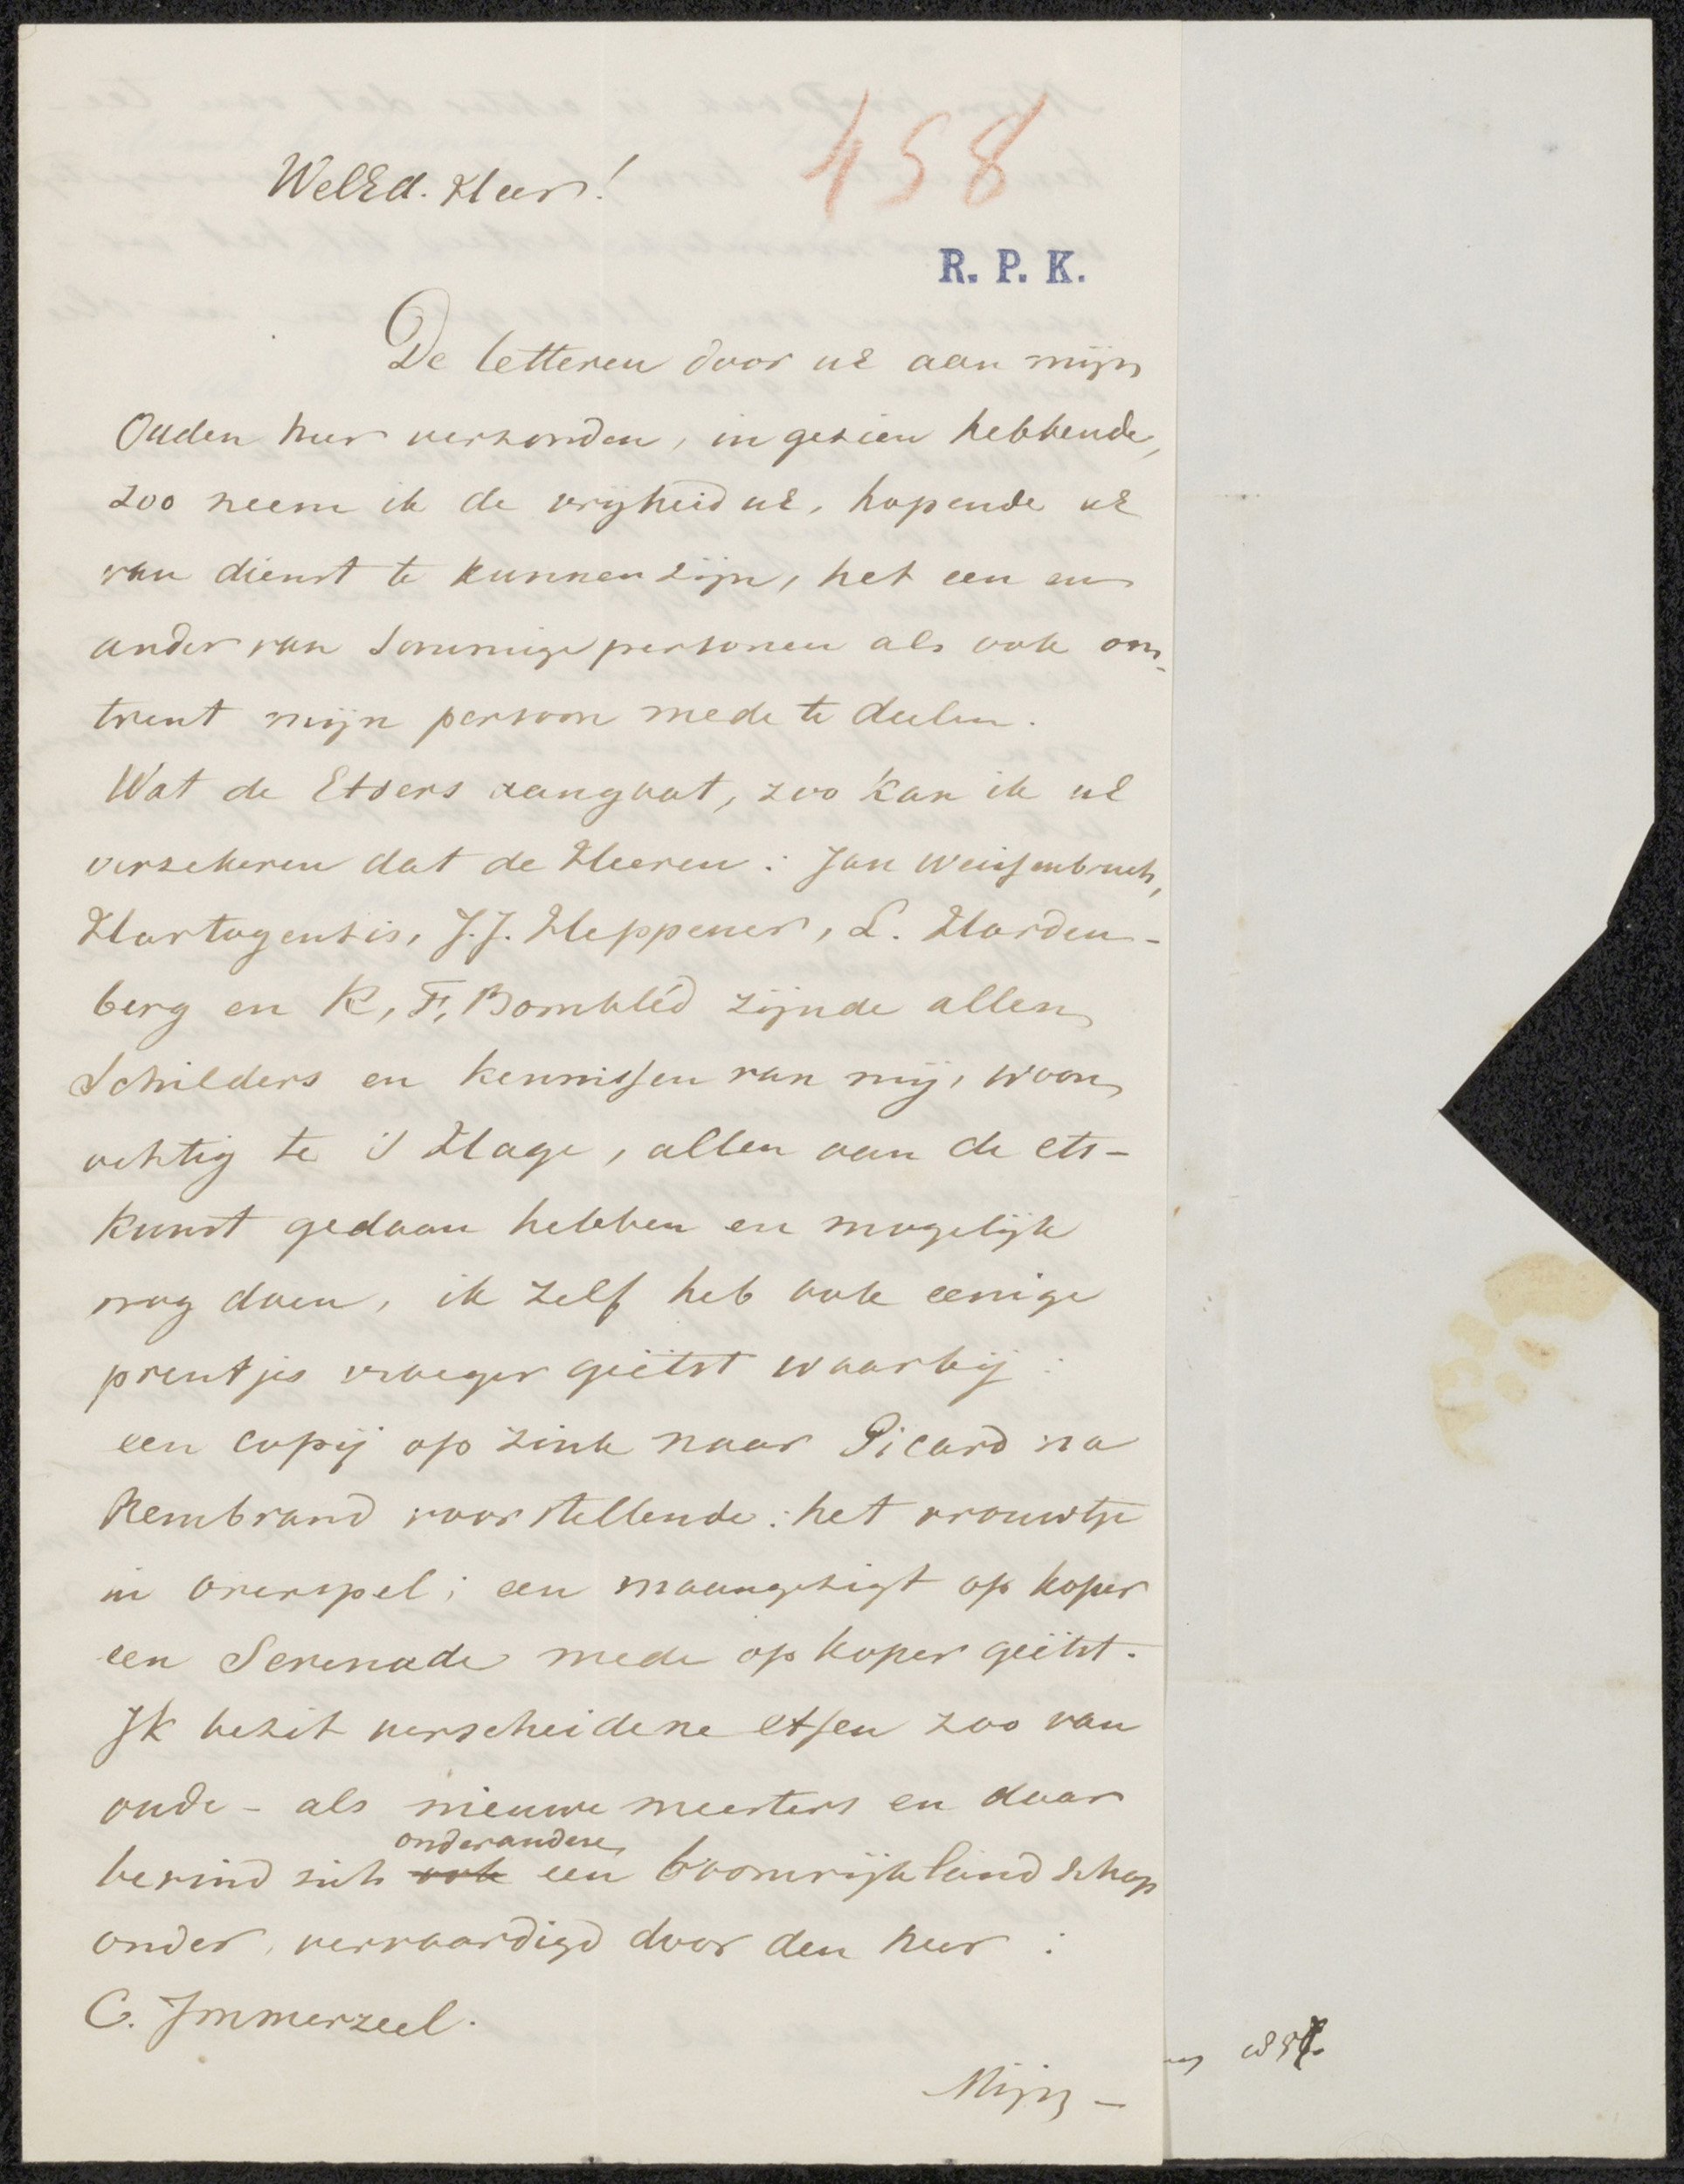 458
WelEd. Heer!
R. P. K.
De letteren door UE aan mijn
Ouden heer verzonden, ingezien hebbende,
zoo neem ik de vrijheid UE, hopende UE
van dienst te kunnen zijn, het een en
ander van sommige personen als ook om-
trent mijn persoon mede te deelen.
Wat de Etsers aangaat, zoo kan ik UE
verzekeren dat de Heeren: Jan Weissenbruch,
Hartogensis, J.J. Heppener, L. Harden-
berg en K, F, Bombléd zijnde allen
Schilders en kennissen van mij, woon
achtig te 's Hage, allen aan de ets-
kunst gedaan hebben en mogelijk
nog doen, ik zelf heb ook eenige
prentjes vroeger geëtst waarbij:
een copij op zink naar Picard na
Rembrand voorstellende: het vrouwtje
in overspel; een maangezigt op koper
een Serenade mede op koper geëtst.
Ik bezit verscheidene etsen zoo van
oude - als nieuwe meesters en daar
onderandere
bevind zich ook een boomrijk landschap
onder, vervaardigd door den heer:
C. Immerzeel.
Mijn -